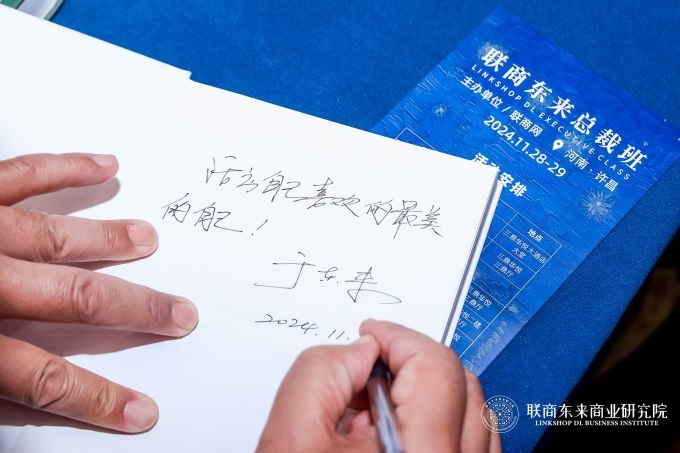 活出自己喜欢的最美
的自己！
于东来
2024.11.
联商东来总裁班
LINKSHOP DL EXECUTIVE CLASS
主办单位/联商网
2024.11.28-29
河南·许昌
安排
地点
三鼎华悦大酒店
大堂
三鼎华悦
三鼎厅
联商东来商业研究院
LINKSHOP DL BUSINESS INSTITUTE